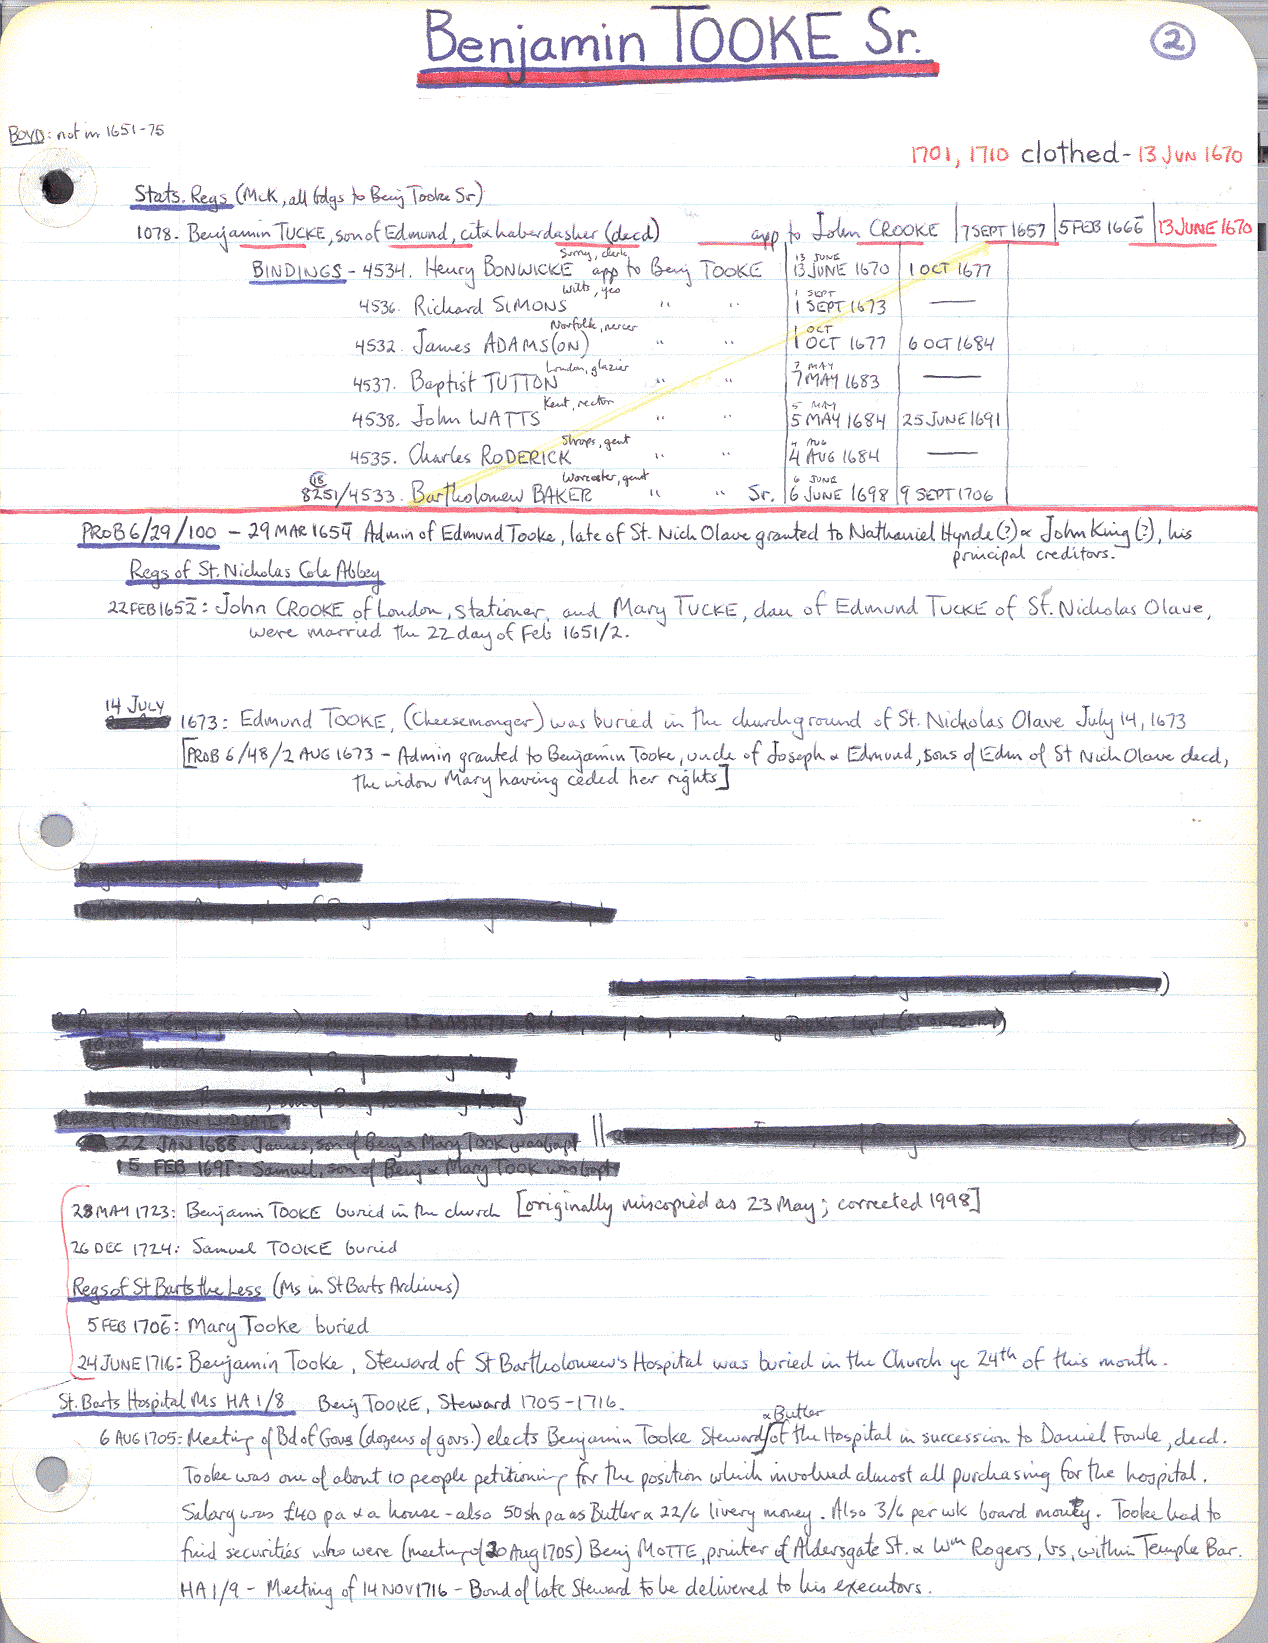 Benjamin TOOKE Sr.
2
BOYD: not in 1651-75
1701, 1710 clothed - 13 JUN 1670
Stats. Regs (McK, all bdgs to Benj Tooke Sr)
1078. Benjamin TUCKE, son of Edmund, cit & haberdasher (decd) app to John CROOKE 7 SEPT 1657 5 FEB 1666 13 JUNE 1670
Surrey, clerk 13 JUNE
BINDINGS - 4534. Henry BONWICKE app to Benj TOOKE 13 JUNE 1670 1 OCT 1677
Wilts, yeo 1 SEPT
4536. Richard SIMONS " " 1 SEPT 1673 —
Norfolk, mercer 1 OCT
4532. James ADAMS(ON) " " 1 OCT 1677 6 OCT 1684
London, glazier 7 MAY
4537. Baptist TUTTON " " 7 MAY 1683 —
Kent, rector 5 MAY
4538. John WATTS " " 5 MAY 1684 25 JUNE 1691
Shrops, gent 4 AUG
4535. Charles RODERICK " " 4 AUG 1684 —
18 Worcester, gent 6 JUNE
8251/4533. Bartholomew BAKER " " Sr. 6 JUNE 1698 9 SEPT 1706
PROB 6/29/100 - 29 MAR 1654 Admin of Edmund Tooke, late of St. Nich Olave granted to Nathaniel Hynde(?) & John King(?), his
principal creditors.
Regs of St. Nicholas Cole Abbey
22 FEB 1652: John CROOKE of London, Stationer, and Mary TUCKE, dau of Edmund TUCKE of St. Nicholas Olave,
were married the 22 day of Feb 1651/2.
14 JULY
1673: Edmund TOOKE, (Cheesemonger) was buried in the churchground of St. Nicholas Olave July 14, 1673
[PROB 6/48/2 AUG 1673 - Admin granted to Benjamin Tooke, uncle of Joseph & Edmund, sons of Edm of St Nich Olave decd,
the widow Mary having ceded her rights]
Regs of St MARTIN LUDGATE
22 JAN 1688: James, son of Benj & Mary TOOK was bapt
15 FEB 1691: Samuel, son of Benj & Mary TOOK was bapt
28 MAY 1723: Benjamin TOOKE buried in the church [originally miscopied as 23 May; corrected 1998]
26 DEC 1724: Samuel TOOKE buried
Regs of St Barts the Less (Ms in St Barts Archives)
5 FEB 1706: Mary Tooke buried
24 JUNE 1716: Benjamin Tooke, Steward of St Bartholomew's Hospital was buried in the Church ye 24th of this month.
St. Barts Hospital Ms HA 1/8 Benj TOOKE, Steward 1705-1716.
& Butler
6 AUG 1705: Meeting of Bd of Govs (dozens of govs.) elects Benjamin Tooke Steward of the Hospital in succession to Daniel Fowle, decd.
Tooke was one of about 10 people petitioning for the position which involved almost all purchasing for the hospital.
Salary was £40 pa & a house - also 50 sh pa as Butler & 22/6 livery money. Also 3/6 per wk board money. Tooke had to
find securities who were (meeting of 20 Aug 1705) Benj MOTTE, printer of Aldersgate St. & Wm Rogers, bs, within Temple Bar.
HA 1/9 - Meeting of 14 NOV 1716 - Bond of late Steward to be delivered to his executors.